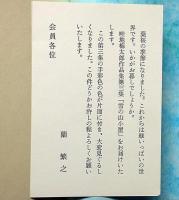 葉桜の季節になりました。これからは緑いっぱいの世
界です。いかがお暮しでしょうか。
畦地梅太郎作品集第三集「雪の山小屋」をお届けいた
します。
この第三集の手彩色の色が片面に付き、大変見ぐるし
くなりました。この件どうかお許しの程よろしくお願い
いたします。
蘭 繁之
会員各位